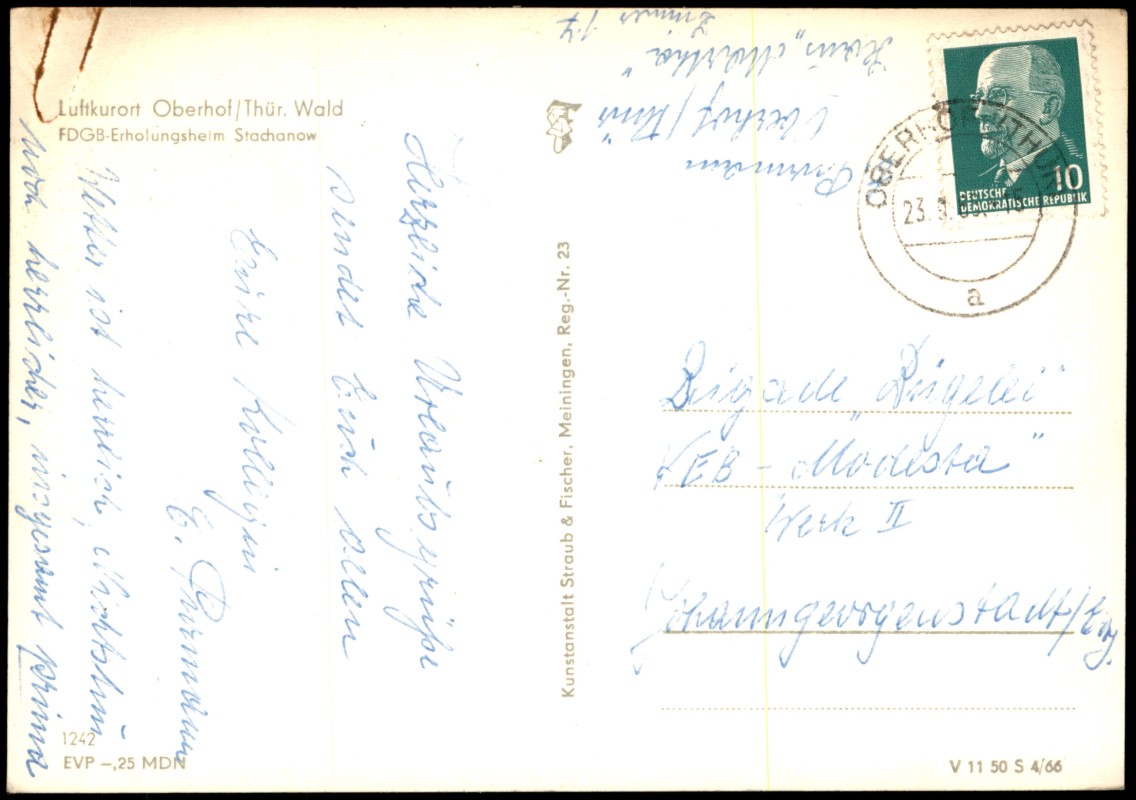 Luftkurort Oberhof/Thür. Wald
FDGB-Erholungsheim Stachanow
Herzliche Urlaubsgrüße
sendet Euch allen
Eure Kollegin
E. Thurmann
Wetter ist herrlich, Nichtstun
noch herrlicher, insgesamt prima
1242
EVP –,25 MDN
Kunstanstalt Straub & Fischer, Meiningen, Reg.-Nr. 23
Oberhof/Thür
Haus „Martha"
Zimmer 17
10
DEUTSCHE
DEMOKRATISCHE REPUBLIK
OBERHOF (THÜR)
23.
a
Brigade „Bügelei"
VEB - Modesta"
Werk II
Johanngeorgenstadt/Erzg.
V 11 50 S 4/66